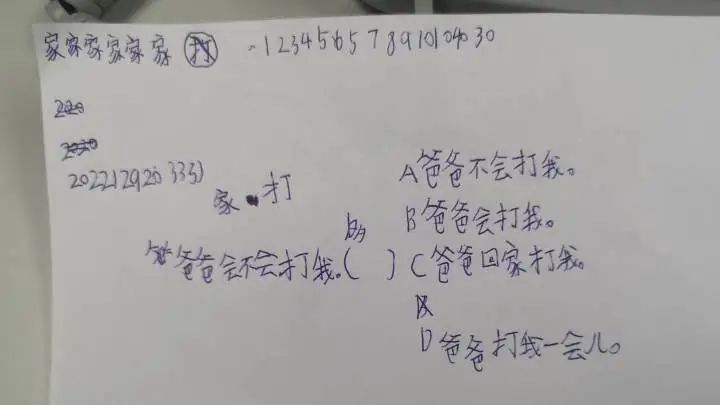 家家家家家家 打 123456578910104030
202212920
家 打
A爸爸不会打我。
B爸爸会打我。
爸爸会不会打我。( )
C爸爸回家打我。
D爸爸打我一会儿。